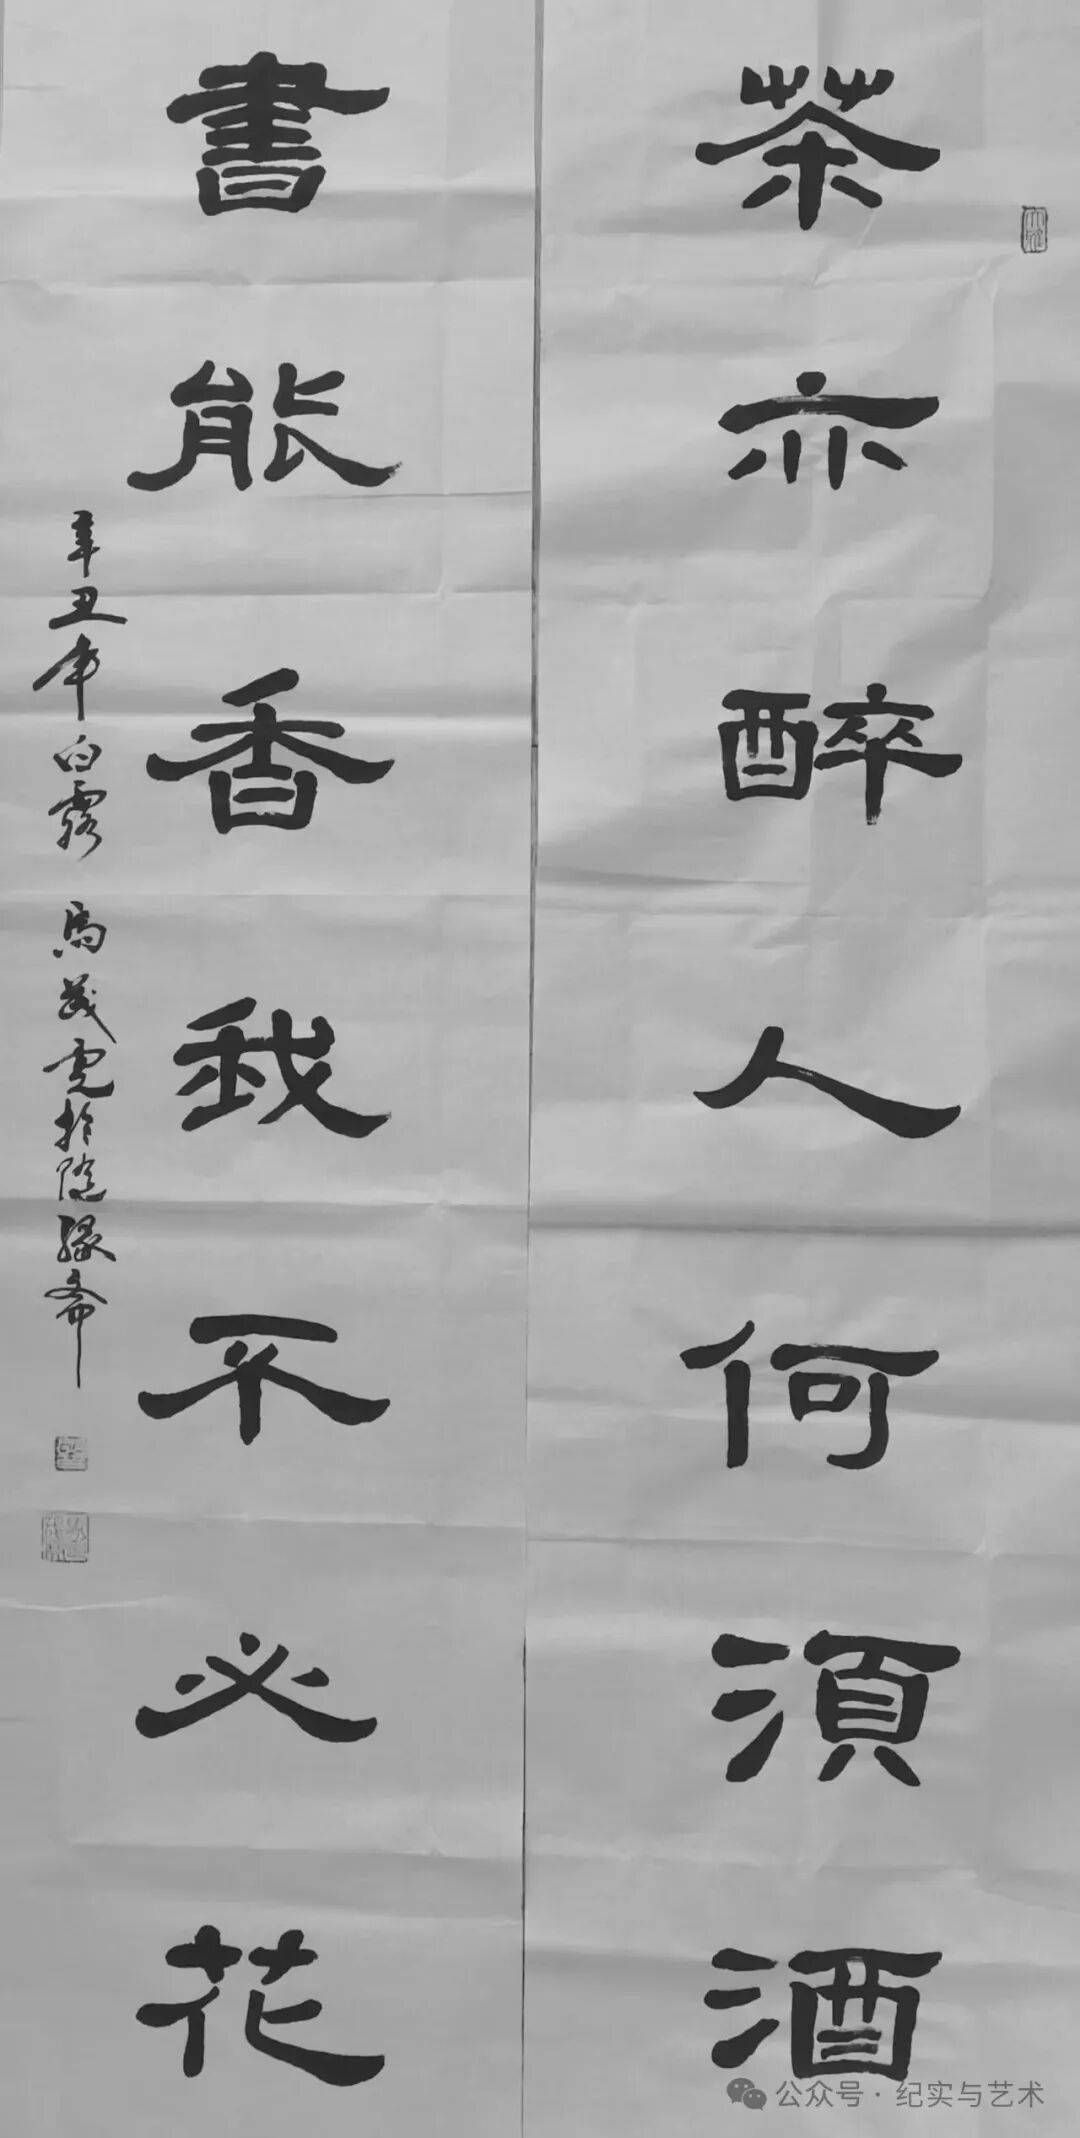 茶亦醉人何須酒
書能香我不必花
辛丑年白露 馬茂虎於隨緣齋
公众号·纪实与艺术